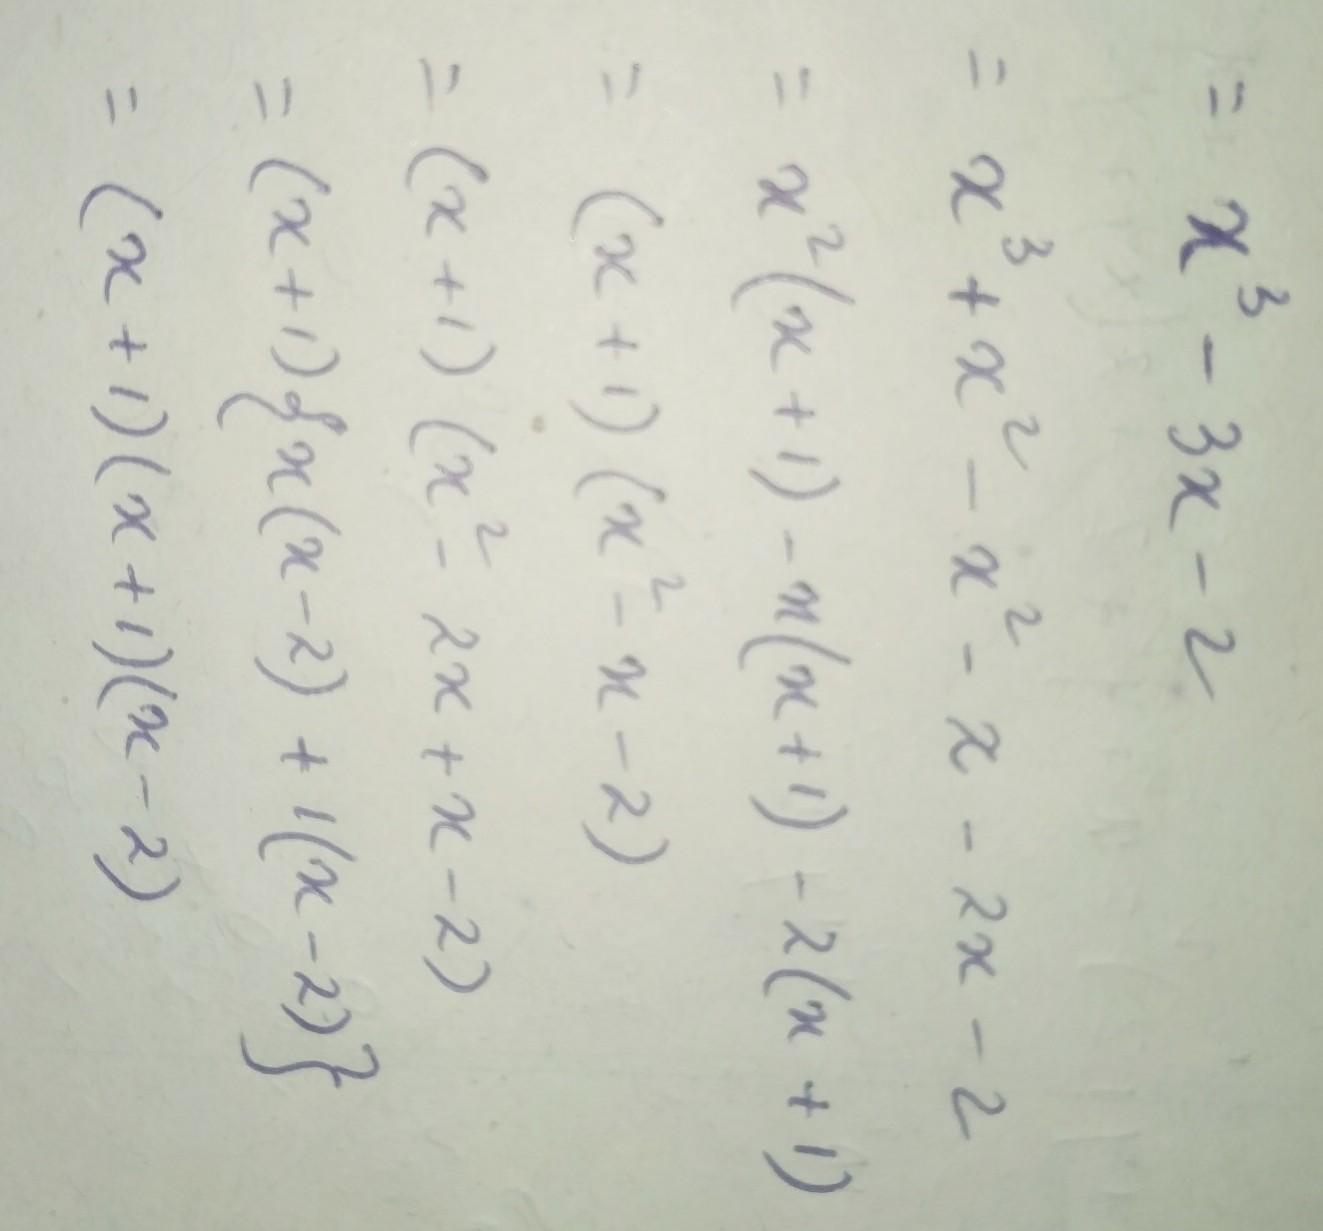 = x³ - 3x - 2
= x³ + x² - x² - x - 2x - 2
= x²(x + 1) - x(x + 1) - 2(x + 1)
= (x + 1) (x² - x - 2)
= (x + 1) (x² - 2x + x - 2)
= (x + 1) {x(x - 2) + 1(x - 2)}
= (x + 1)(x + 1)(x - 2)